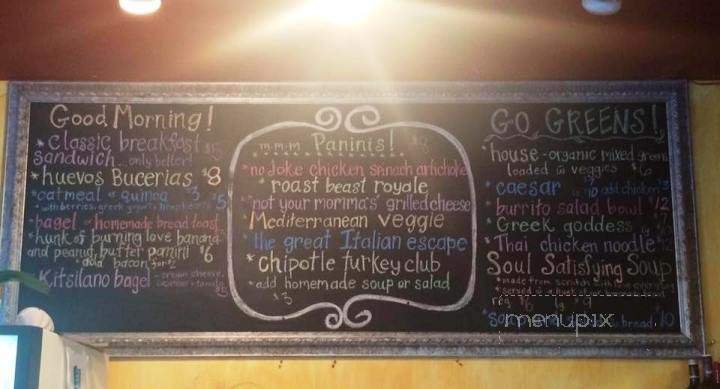 Good Morning!
* classic breakfast $5
sandwich... only better!
* huevos Bucerias $8
* oatmeal or quinoa 3 5
with berries, greek yogurt & hemp hearts
* bagel or homemade bread toast
* hunk of burning love banana
and peanut butter panini $6
* add bacon for
* Kitsilano bagel - cream cheese,
cucumber + tomato
m.m.m Paninis! $8
* no joke chicken spinach artichoke
* roast beast royale
* not your momma's grilled cheese
* Mediterranean veggie
* the great Italian escape
* chipotle turkey club
* add homemade soup or salad
$3
GO GREENS!
* house - organic mixed greens
loaded w veggies $6
* caesar 10 add chicken $3
* burrito salad bowl $12
* Greek goddess
* Thai chicken noodle
Soul Satisfying Soup
* made from scratch with
served
reg $6 lg
bread $10
menupix